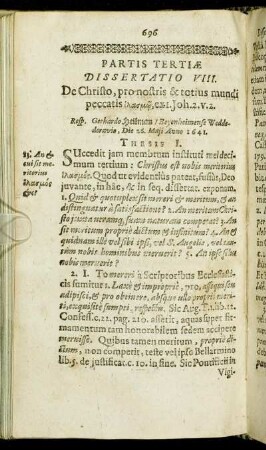 696
PARTIS TERTIÆ
DISSERTATIO VIII.
De Christo, pro nostris & totius mundi
peccatis ἱλασμῷ, ex 1. Joh. 2. v. 2.
Resp. Gerhardo
Die 28. Maji Anno 1641.
THESIS I.
Succedit jam membrum instituti mei declamum
tertium: Christus est nobis meritorius
ἱλασμός. Quod ut evidentius pateat, fusius, Deo
juvante, in hâc, & in seq. dissertat. exponam.
1. Quid & quotuplex sit mereri & meritum, & an
distinguatur à satisfactione? 2. An meritum Christo
juxta utramq; suam naturam competat? 3. An
sit meritum propriè dictum & infinitum? 4. An &
quidnam ille vel sibi ipsi, vel S. Angelis, vel tantùm
nobis hominibus meruerit? 5. An ipse sua
nobis meruerit?
2. I. To mereri in Scriptoribus Ecclesiasticis
sumitur 1. Laxè & impropriè, pro, aliquid
adipisci, & pro obtinere, absque ullo proprio merito,
Sic Aug. l.
Confess. c. 22. pag. 210. asserit, aquas super firmamentum
tam honorabilem sedem accipere
meruisse. Quibus tamen meritum, propriè dictum,
non competit, teste vel ipso Bellarmino
lib. 5. de justificat. c. 10. in fine. Sic Pontificii in
Vigi-
31. An &
qui sit meritorius
ἱλασμός